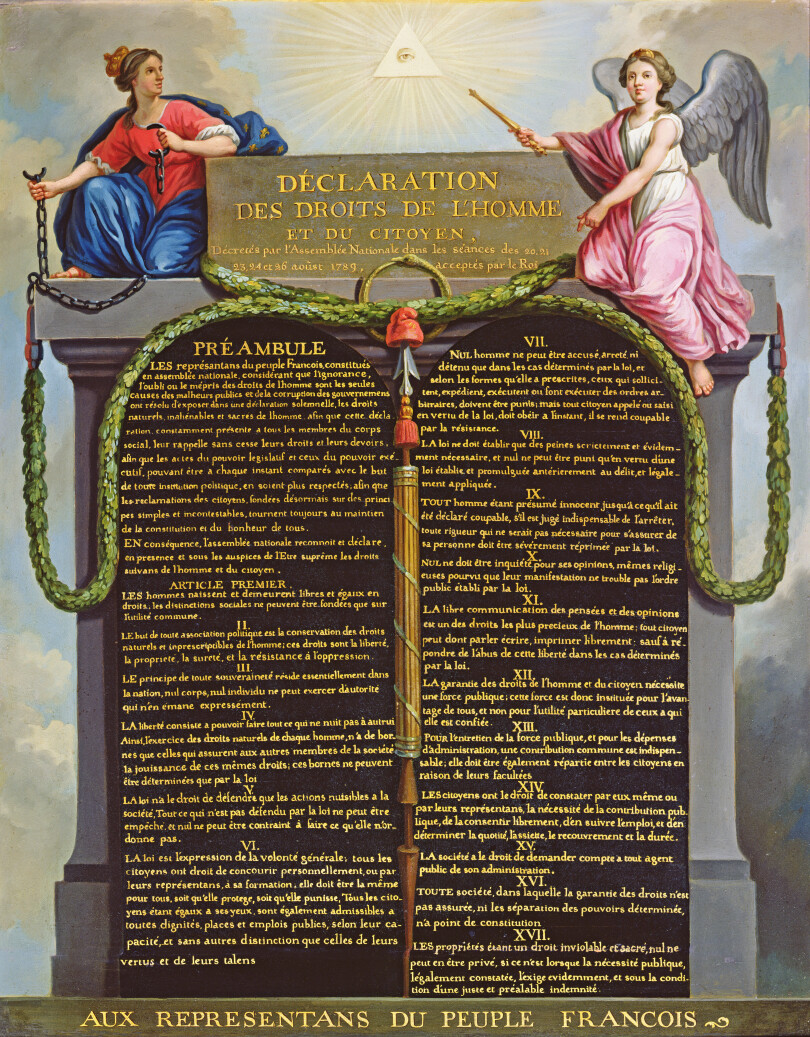 DÉCLARATION
DES DROITS DE L'HOMME
ET DU CITOYEN,
Décretés par l'Assemblée Nationale dans les séances des 20, 21
23, 24 et 26 août 1789, acceptés par le Roi
PRÉAMBULE
LES représantans du peuple Francois, constitués
en assemblée nationale, considérant que l'ignorance,
l'oubli ou le mépris des droits de l'homme sont les seules
causes des malheurs publics et de la corruption des gouvernemens
ont résolu d'exposer dans une déclaration solemnelle, les droits
naturels, inaliénables et sacrés de l'homme, afin que cette décla
ration, constamment présente a tous les membres du corps
social, leur rappelle sans cesse leurs droits et leurs devoirs,
afin que les actes du pouvoir legislatif et ceux du pouvoir exé
cutif, pouvant être a chaque instant comparés avec le but
de toute institution politique, en soient plus respectés; afin que
les reclamations des citoyens, fondées désormais sur des princi
pes simples et incontestables, tournent toujours au maintien
de la constitution et du bonheur de tous.
EN conséquence, l'assemblée nationale reconnoit et déclare,
en presence et sous les auspices de l'Etre suprême les droits
suivans de l'homme et du citoyen.
ARTICLE PREMIER.
LES hommes naissent et demeurent libres et égaux en
droits, les distinctions sociales ne peuvent être fondées que sur
l'utilité commune.
II.
LE but de toute association politique est la conservation des droits
naturels et inprescriptibles de l'homme; ces droits sont la liberté,
la propriete, la sureté, et la résistance à l'oppression.
III.
LE principe de toute souveraineté réside essentiellement dans
la nation, nul corps, nul individu ne peut exercer d'autorité
qui n'en émane expressement.
IV.
LA liberté consiste a pouvoir faire tout ce qui ne nuit pas à autrui
Ainsi, l'exercice des droits naturels de chaque homme, n'a de bor-
nes que celles qui assurent aux autres membres de la société
la jouissance de ces mêmes droits; ces bornes ne peuvent
être déterminées que par la loi
V.
LA loi n'a le droit de défendre que les actions nuisibles a la
société, Tout ce qui n'est pas défendu par la loi ne peut être
empêché, et nul ne peut être contraint à faire ce qu'elle n'or-
donne pas.
VI.
LA loi est l'expression de la volonté générale; tous les
citoyens ont droit de concourir personnellement, ou par
leurs représentans, à sa formation; elle doit être la même
pour tous, soit qu'elle protege, soit qu'elle punisse, Tous les cito-
yens étant égaux a ses yeux, sont également admissibles a
toutes dignités, places et emplois publics, selon leur ca-
pacité, et sans autres distinction que celles de leurs
vertus et de leurs talens
VII.
NUL homme ne peut être accusé, arreté, ni
détenu que dans les cas déterminés par la loi, et
selon les formes qu'elle a prescrites, ceux qui sollici-
tent, expédient, exécutent ou font exécuter des ordres ar-
bitraires, doivent être punis; mais tout citoyen appelé ou saisi
en vertu de la loi, doit obéir a l'instant, il se rend coupable
par la résistance.
VIII.
LA loi ne doit établir que des peines strictement et évidem-
ment nécessaire, et nul ne peut être puni qu'en vertu d'une
loi établie et promulguée antérierement au délit, et légale-
ment appliquée.
IX.
TOUT homme étant présumé innocent jusqu'à ce qu'il ait
été déclaré coupable, s'il est jugé indispensable de l'arrêter,
toute rigueur qui ne serait pas nécessaire pour s'assurer de
sa personne doit être sévèrement réprimée par la loi.
X.
NUL ne doit être inquiété pour ses opinions, mêmes religi-
euses pourvu que leur manifestation ne trouble pas l'ordre
public établi par la loi.
XI.
LA libre communication des pensées et des opinions
est un des droits les plus precieux de l'homme; tout citoyen
peut dont parler écrire, imprimer librement: sauf à ré-
pondre de l'abus de cette liberté dans les cas déterminés
par la loi.
XII.
LA garantie des droits de l'homme et du citoyen nécessite
une force publique; cette force est donc instituée pour l'avan-
tage de tous, et non pour l'utilité particuliere de ceux a qui
elle est confiée.
XIII.
POUR l'entretien de la force publique, et pour les dépenses
d'administration, une contribution commune est indispen-
sable; elle doit être également répartie entre les citoyens en
raison de leurs facultées
XIV.
LES citoyens ont le droit de constater par eux même ou
par leurs représentans, la nécessité de la contribution pub-
lique, de la consentir librement, d'en suivre l'emploi, et d'en
déterminer la quotité, l'assiette, le recouvrement et la durée.
XV.
LA société a le droit de demander compte a tout agent
public de son administration.
XVI.
TOUTE société, dans laquelle la garantie des droits n'est
pas assurée, ni les séparation des pouvoirs déterminée,
n'a point de constitution
XVII.
LES propriétés étant un droit inviolable et sacré, nul ne
peut en être privé, si ce n'est lorsque la nécessité publique,
légalement constatée, l'exige evidemment, et sous la condi-
tion d'une juste et préalable indemnité.
AUX REPRESENTANS DU PEUPLE FRANCOIS